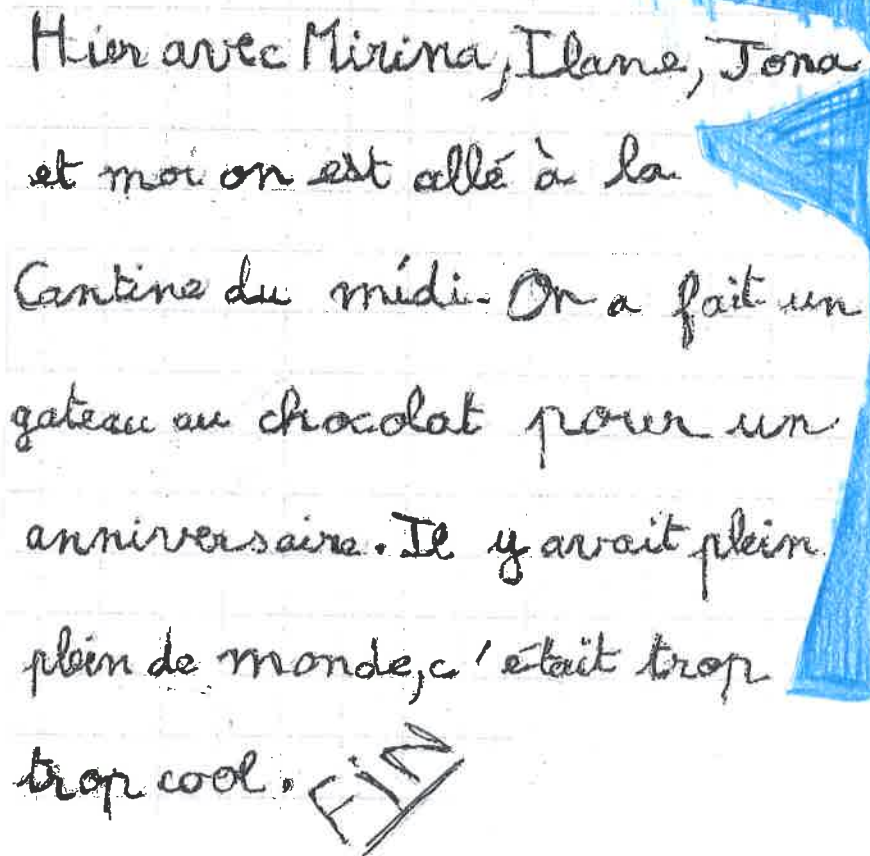 Hier avec Mirina, Ilane, Jona
et moi on est allé à la
Cantine du midi. On a fait un
gateau au chocolat pour un
anniversaire. Il y avait plein
plein de monde, c'était trop
trop cool.
FiN